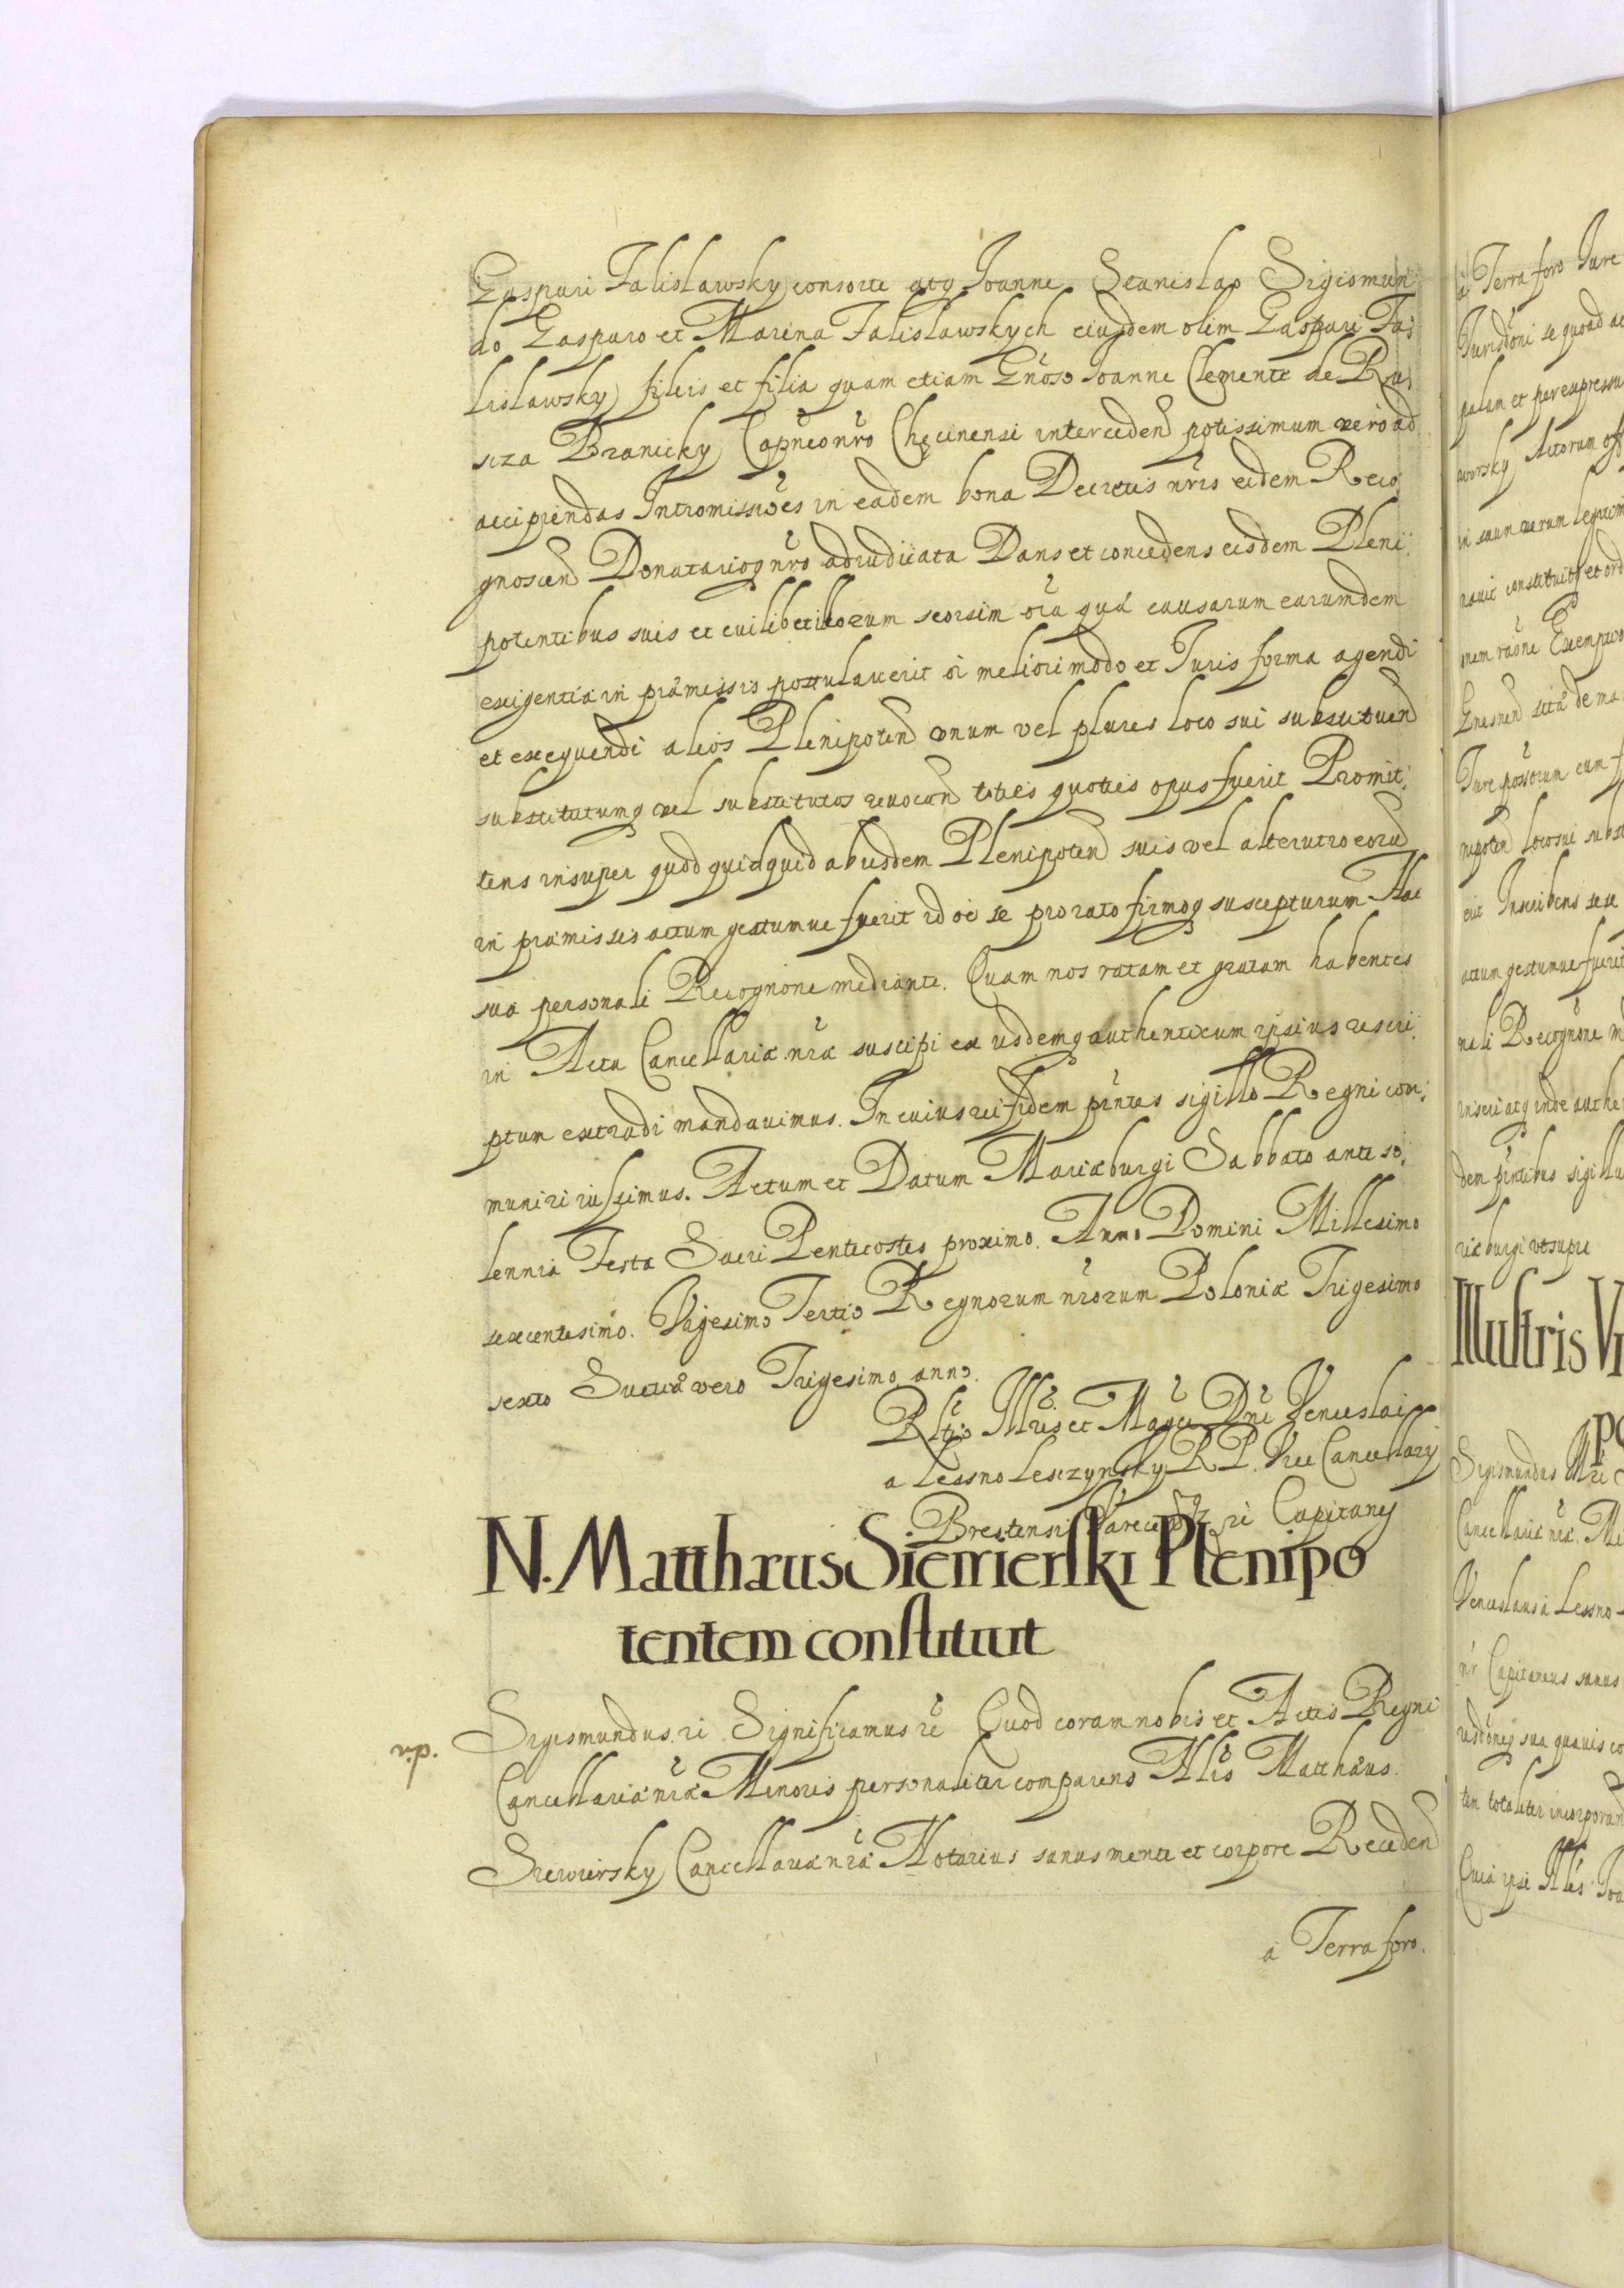 Gaspari Falislawsky consorte atq Joanne Stanislao Sigismun:
do Gasparo et Marina Falislawskych eiusdem olim Gaspari Fa:
lislawsky filiis et filia quam etiam Gnoso Joanne Clemente de Ru:
sza Branicky Capneo nro Chęcinensi interceden potissimum vero ad
accipiendas Intromissiões in eadem bona Decretis nris eidem Reco:
gnoscen Donatarioq nro adiudicata Dans et concedens eisdem Pleni:
potentibus suis et cuilibet illorum seorsim oia quæ causarum earumdem
exigentia in præmissis postulaverit oi meliori modo et Juris forma agendi
et exequendi alios Plenipoten unum vel plures loco sui substituen
substitutumq vel substitutos revocan toties quoties opus fuerit Promit:
tens insuper quod quidquid ab iisdem Plenipoten suis vel alterutro eorũ
in præmissis actum gestumue fuerit id oe se pro rato firmoq suscepturum Hac
sua personali Recognone mediante. Quam nos ratam et gratam habentes
in Acta Cancellariæ nræ suscipi ex iisdemq authenticum ipsius rescri:
ptum extradi mandavimus. In cuius rei fidem pñtes sigillo Regni com:
muniri iussimus. Actum et Datum Mariæburgi Sabbato ante so:
lennia Festa Sacri Pentecostes proximo. Anno Domini Millesimo
sexcentesimo. Vigesimo Tertio Regnorum nrorum Poloniæ Trigesimo
sexto Sueciæ vero Trigesimo anno.
Rltio Illris et Magci Dni Venceslai
a Lessno Lesczynsky R P. Vice Cancellarÿ
Brestensi ri Capitanej
N. Matthæus Siewierski Plenipo
tentem constituit
Sigismundus ri Significamus rc Quod coram nobis et Actis Regni
Cancellariæ nræ Minoris personaliter comparens Nlis Matthæus.
Siewiersky Cancellariæ nræ Notarius sanus mente et corpore Receden
a Terra foro.
à Terra foro Jure
Jurisdoni se quoad ac
palam et per expressum
worsky Actorum off
in suum verum legitim
ravit constituitq et ord
nem raone Exemptio
Gnesnen sita de ma
Jure possorum cum f
nipoten loco sui subst
erit Inscribens sese
actum gestumue fuerit
nali Recognone m
inseri atq inde authe
dem pñtibus sigillu
riæburgi ut supra
Illustris Vi
po
Sigismundus
Cancellariæ nræ. Mi
Venceslaus à Lessno
nr Capitaneus sanus
risdoneq sua quavis co
tim totaliter incorporan
Quia ipse Nles Joa